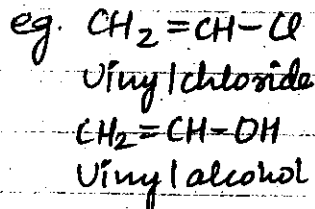 eg. CH₂=CH-Cl
Vinyl chloride
CH₂=CH-OH
Vinyl alcohol